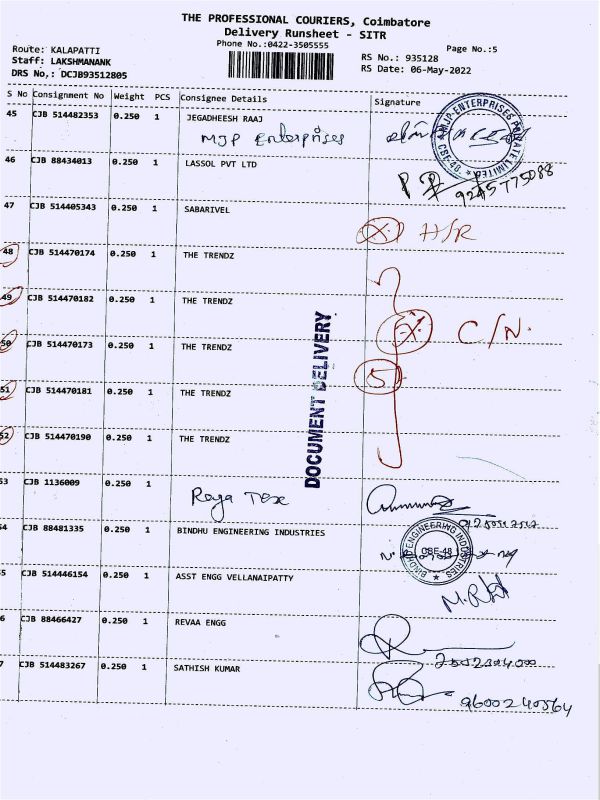 THE PROFESSIONAL COURIERS, Coimbatore
Delivery Runsheet - SITR
Phone No.:0422-3505555
Page No.:5
Route: KALAPATTI
Staff: LAKSHMANANK
DRS No,: DCJB93512805
RS No.: 935128
RS Date: 06-May-2022
S No Consignment No Weight PCS Consignee Details Signature
45 CJB 514482353 0.250 1 JEGADHEESH RAAJ
MJP Enterprises
MJP-ENTERPRISES PRIVATE LIMITED CBE-48
46 CJB 88434013 0.250 1 LASSOL PVT LTD
9245775088
47 CJB 514405343 0.250 1 SABARIVEL
H/R
48 CJB 514470174 0.250 1 THE TRENDZ
49 CJB 514470182 0.250 1 THE TRENDZ
C/N.
50 CJB 514470173 0.250 1 THE TRENDZ
5
51 CJB 514470181 0.250 1 THE TRENDZ
52 CJB 514470190 0.250 1 THE TRENDZ
DOCUMENT DELIVERY
53 CJB 1136009 0.250 1
Raja Tex
54 CJB 88481335 0.250 1 BINDHU ENGINEERING INDUSTRIES
BINDHU ENGINEERING INDUSTRIES CBE-48
5 CJB 514446154 0.250 1 ASST ENGG VELLANAIPATTY
6 CJB 88466427 0.250 1 REVAA ENGG
7 CJB 514483267 0.250 1 SATHISH KUMAR
9600240564